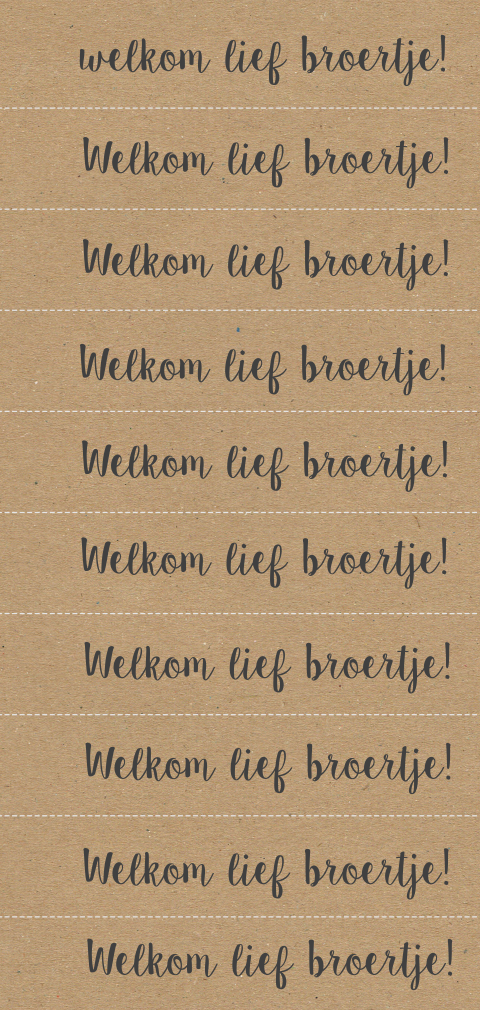 welkom lief broertje!
Welkom lief broertje!
Welkom lief broertje!
Welkom lief broertje!
Welkom lief broertje!
Welkom lief broertje!
Welkom lief broertje!
Welkom lief broertje!
Welkom lief broertje!
Welkom lief broertje!